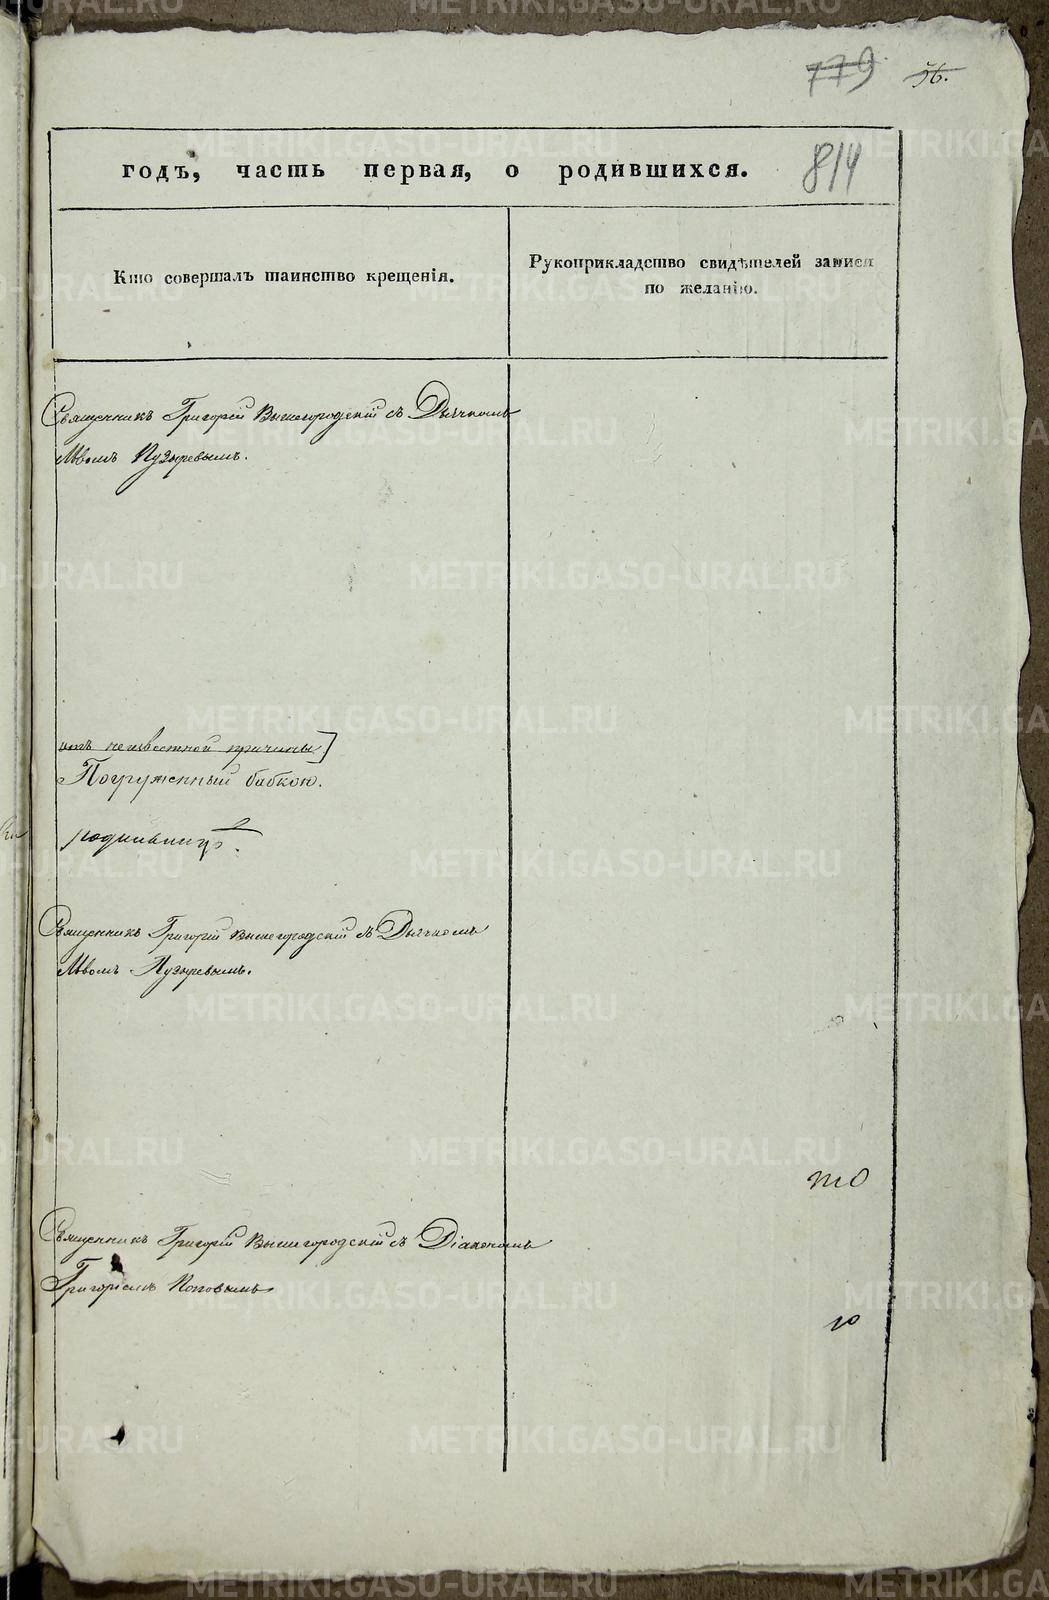 779 56.
годъ, часть первая, о родившихся. 814
Кто совершалъ таинство крещенія.
Рукоприкладство свидѣтелей записи
по желанію.
Священникъ Григорій Вышегородскій съ Дьячкомъ
Львомъ Пузыревымъ.
отъ неизвестной причины]
Погруженный бабкою.
Священникъ Григорій Вышегородскій съ Дьячкомъ
Львомъ Пузыревымъ.
то
Священникъ Григорій Вышегородскій съ Діакономъ
Григоріемъ Поповымъ
го
METRIKI.GASO-URAL.RU